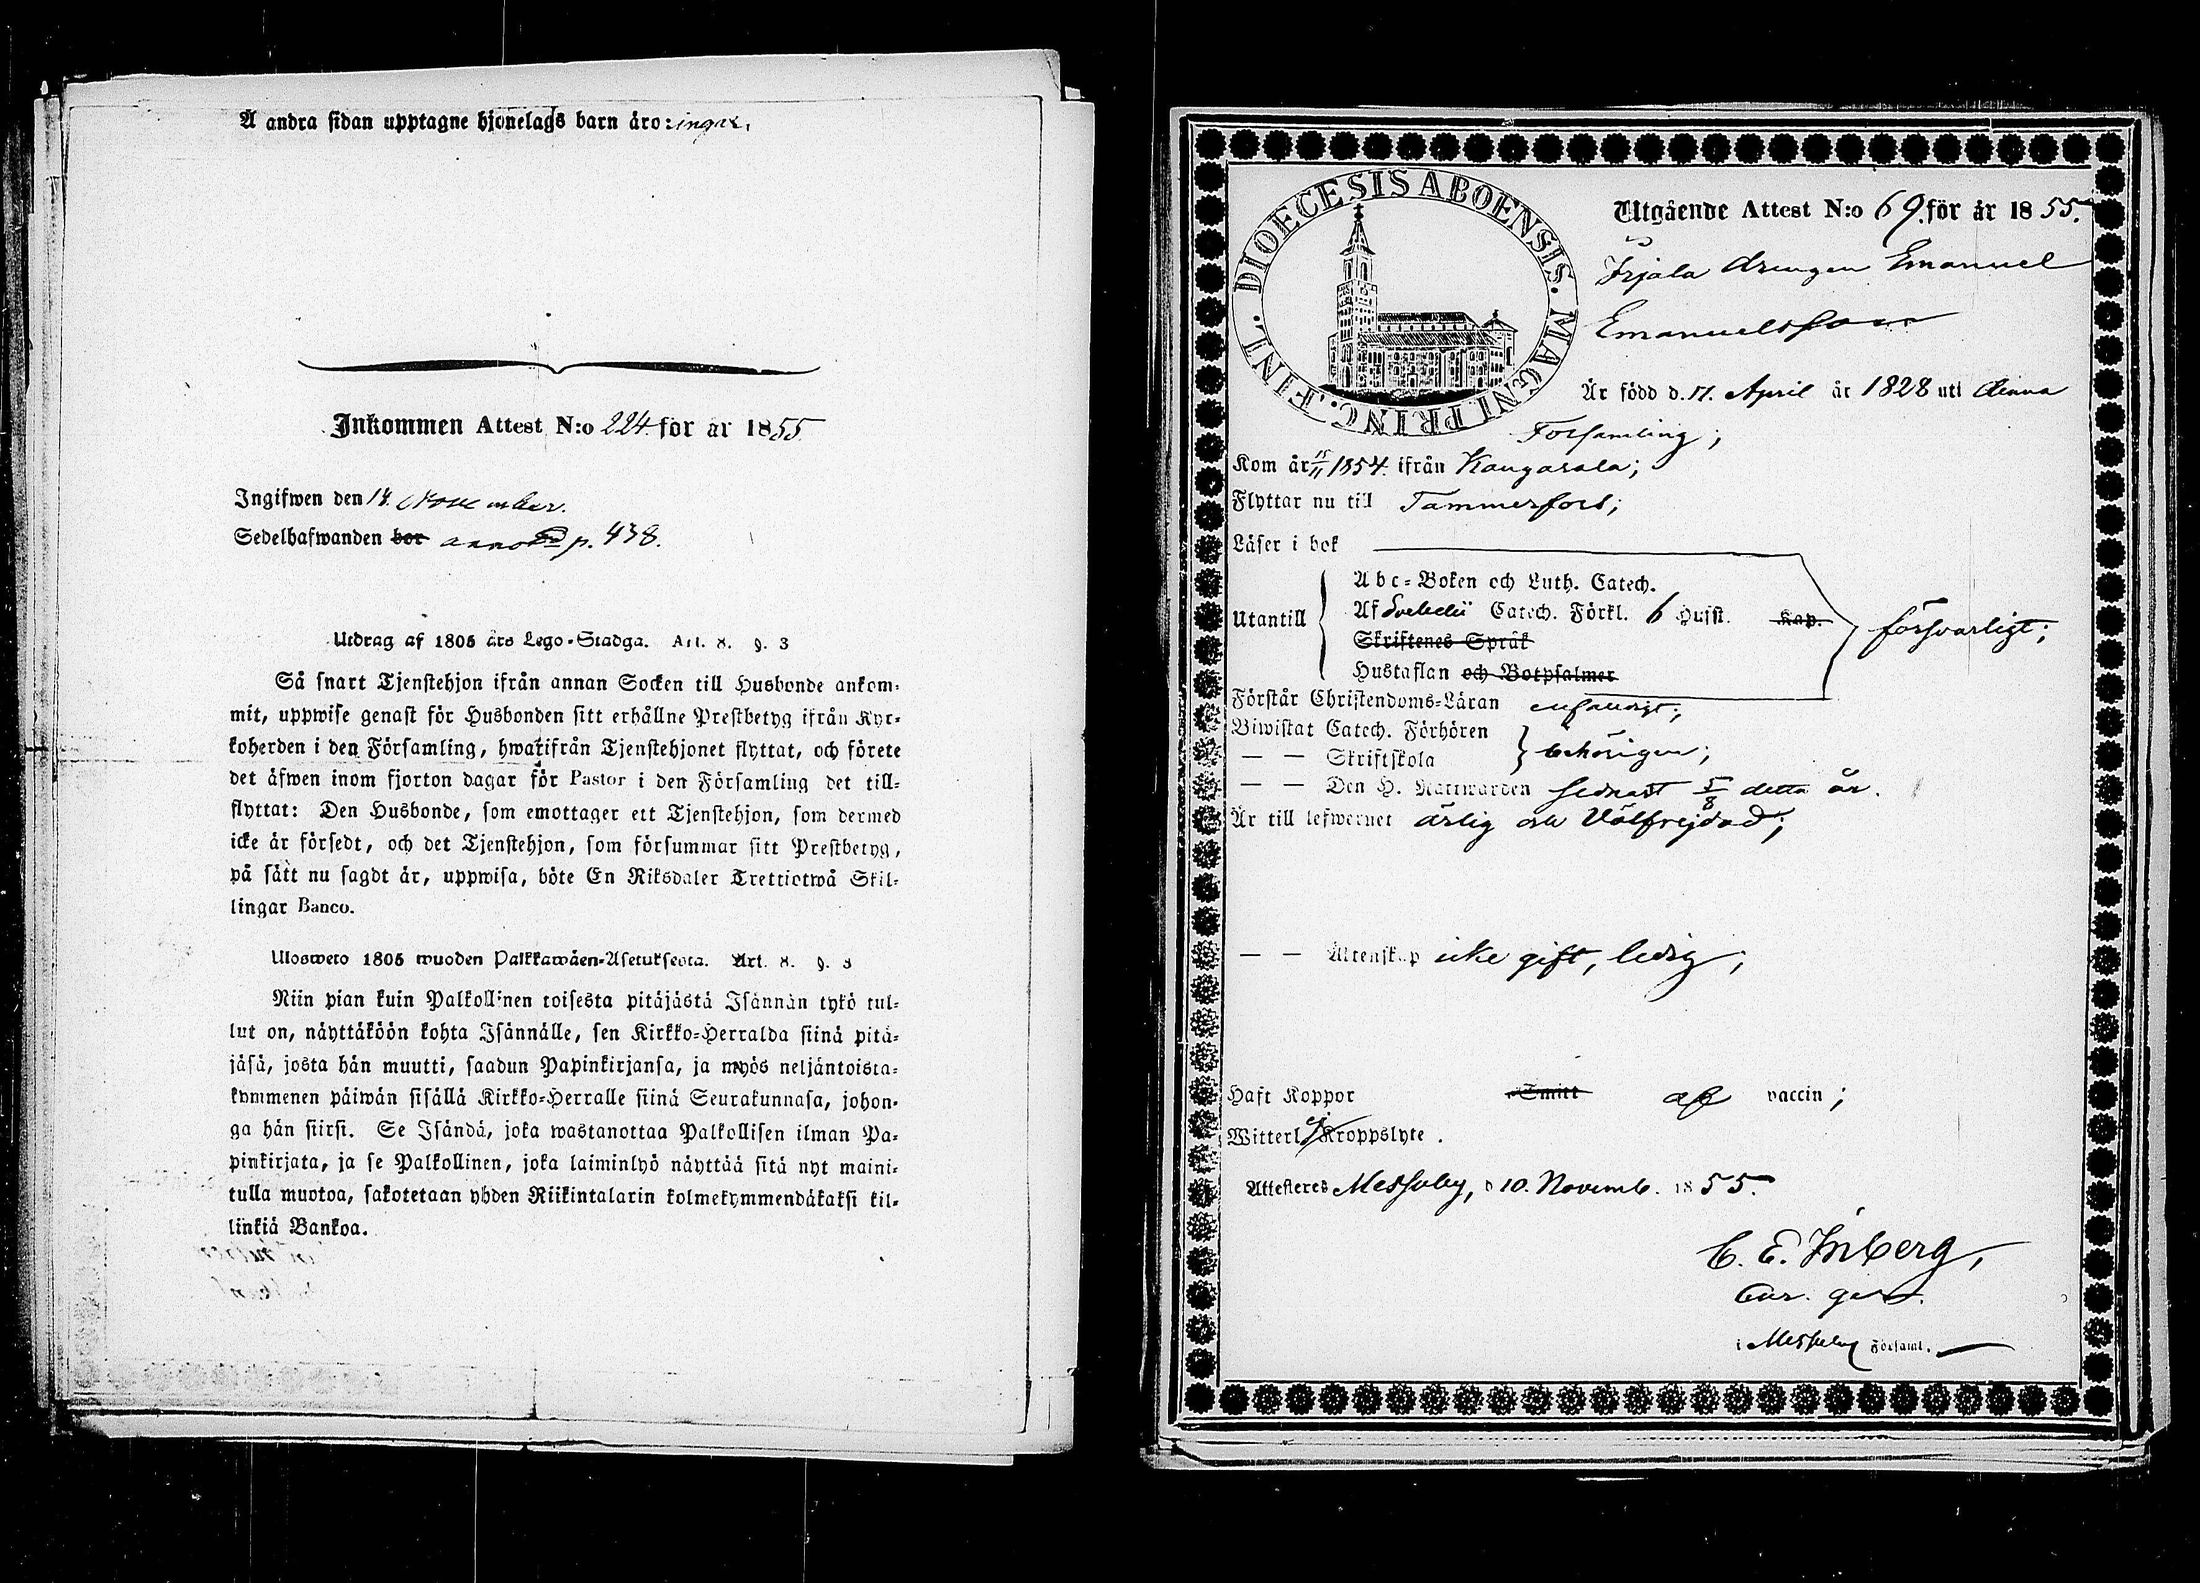 Å andra sidan upptagne hjonelags barn äro: inga.
Inkommen Attest N:o 224. för år 1855
Ingifwen den 14. November.
Sedelhafwanden bor p. 438.
Utdrag af 1805 års Lego-Stadga. Art. 8. §. 3
Så snart Tjenstehjon ifrån annan Socken till Husbonde ankom-
mit, uppwise genast för Husbonden sitt erhållne Prestbetyg ifrån Kyr-
koherden i den Församling, hwarifrån Tjenstehjonet flyttat, och förete
det äfwen inom fjorton dagar för Pastor i den Församling det till-
flyttat: Den Husbonde, som emottager ett Tjenstehjon, som dermed
icke är försedt, och det Tjenstehjon, som försummar sitt Prestbetyg,
på sätt nu sagdt är, uppwisa, böte En Riksdaler Trettiotwå Skil-
lingar Banco.
Ulosweto 1805 wuoden Palkkawäen-Asetuksesta. Art. 8. §. 3
Niin pian kuin Palkollinen toisesta pitäjästä Isännän tykö tul-
lut on, näyttäköön kohta Isännälle, sen Kirkko-Herralda siinä pitä-
jäsä, josta hän muutti, saadun Papinkirjansa, ja myös neljäntoista-
kymmenen päiwän sisällä Kirkko-Herralle siinä Seurakunnasa, johon-
ga hän siirsi. Se Isändä, joka wastanottaa Palkollisen ilman Pa-
pinkirjata, ja se Palkollinen, joka laiminlyö näyttää sitä nyt maini-
tulla muotoa, sakotetaan yhden Riikintalarin kolmekymmendäkaksi kil-
linkiä Bankoa.
DIOECESIS ABOENSIS. MAGNI PRINC. FINL.
Utgående Attest N:o 69. för år 1855.
Irjala drengen Emanuel
Emanuelsson
Är född d. 17. April år 1828 uti denna
Församling;
Kom år 15/11 1854. ifrån Kangasala;
Flyttar nu till Tammerfors;
Läser i bok
Utantill
Abc-Boken och Luth. Catech.
Af Svebelii Catech. Förkl. 6 Hufst. Kap.
Skriftenes Språk
Hustaflan och Botpsalmer
försvarligt;
Förstår Christendoms-Läran enfaldigt;
Biwistat Catech. Förhören
— — Skriftskola
behörigen;
— — Den H. Nattwarden sednast 5/8 detta år.
Är till lefwernet ärlig och Välfrejdad;
— — Äktenskap icke gift, ledig;
Haft Koppor Smitt af vaccin;
Witterl. ej Kroppslyte.
Attesteres Messuby, d 10. Novemb. 1855.
C. E. Inberg,
i Messuby Församl.